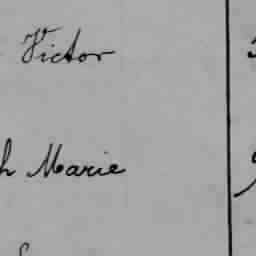 Victor
h Marie